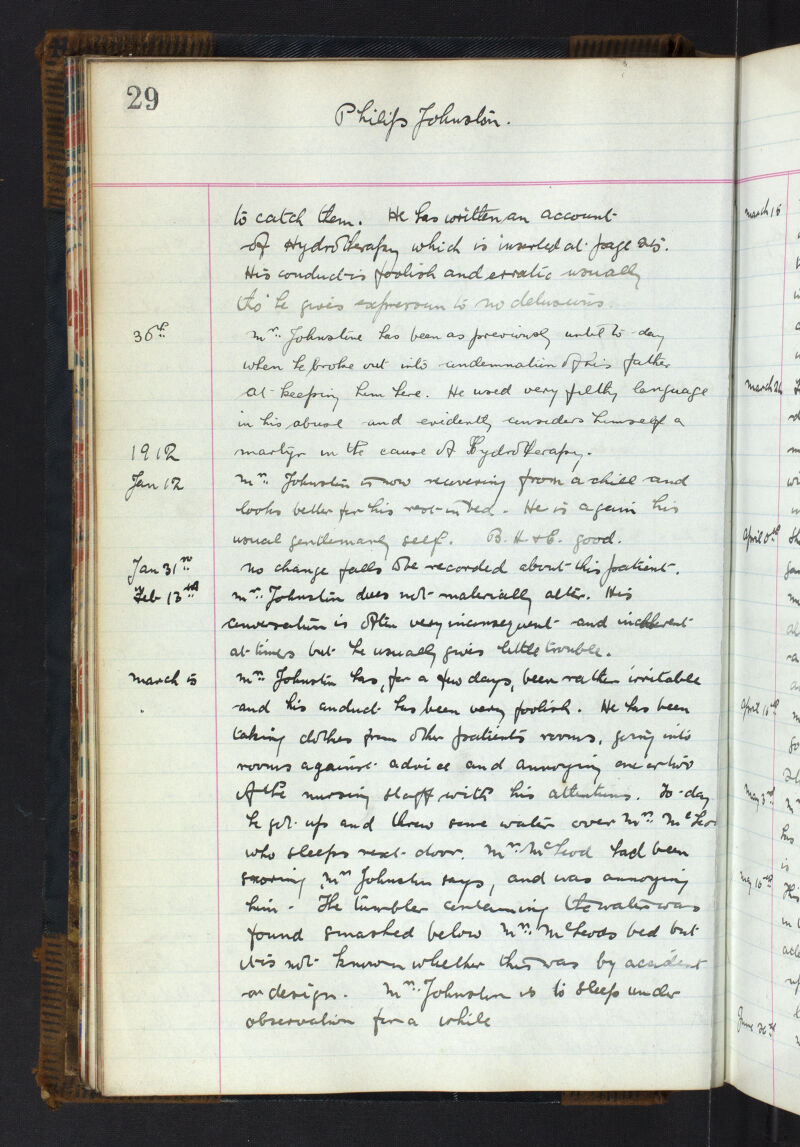 29
Philip Johnston.
to catch them. He has written an account
of Hydrotherapy which is inserted at page 25.
His conduct is foolish and erratic usually
tho' he gives expression to no delusions.
30th Mr. Johnstone has been as previously until to-day
when he broke out into condemnation of his father
at keeping him here. He used very filthy language
in his abuse and evidently considers himself a
1912 martyr in the cause of Hydrotherapy.
Jan 12 Mr. Johnston is now recovering from a chill and
looks better for his rest in bed. He is again his
usual gentlemanly self. B. H. & E. good.
Jan 31st No change falls to be recorded about this patient.
Feb 13th Mr. Johnston does not materially alter. His
conversation is often very inconsequent and incoherent
at times but he usually gives little trouble.
March 5 Mr. Johnston has, for a few days, been rather irritable
and his conduct has been very foolish. He has been
taking clothes from other patients rooms, going into
rooms against advice and annoying one or two
of the nursing staff with his attentions. To-day
he got up and threw some water over Mr. McLeod
who sleeps next door. Mr. McLeod had been
snoring, Mr Johnston says, and was annoying
him. The tumbler containing the water was
found smashed below Mr. McLeods bed but
it is not known whether this was by accident
or design. Mr. Johnston is to sleep under
observation for a while
March 15
March 26
April 16th
May 3rd
May 16th